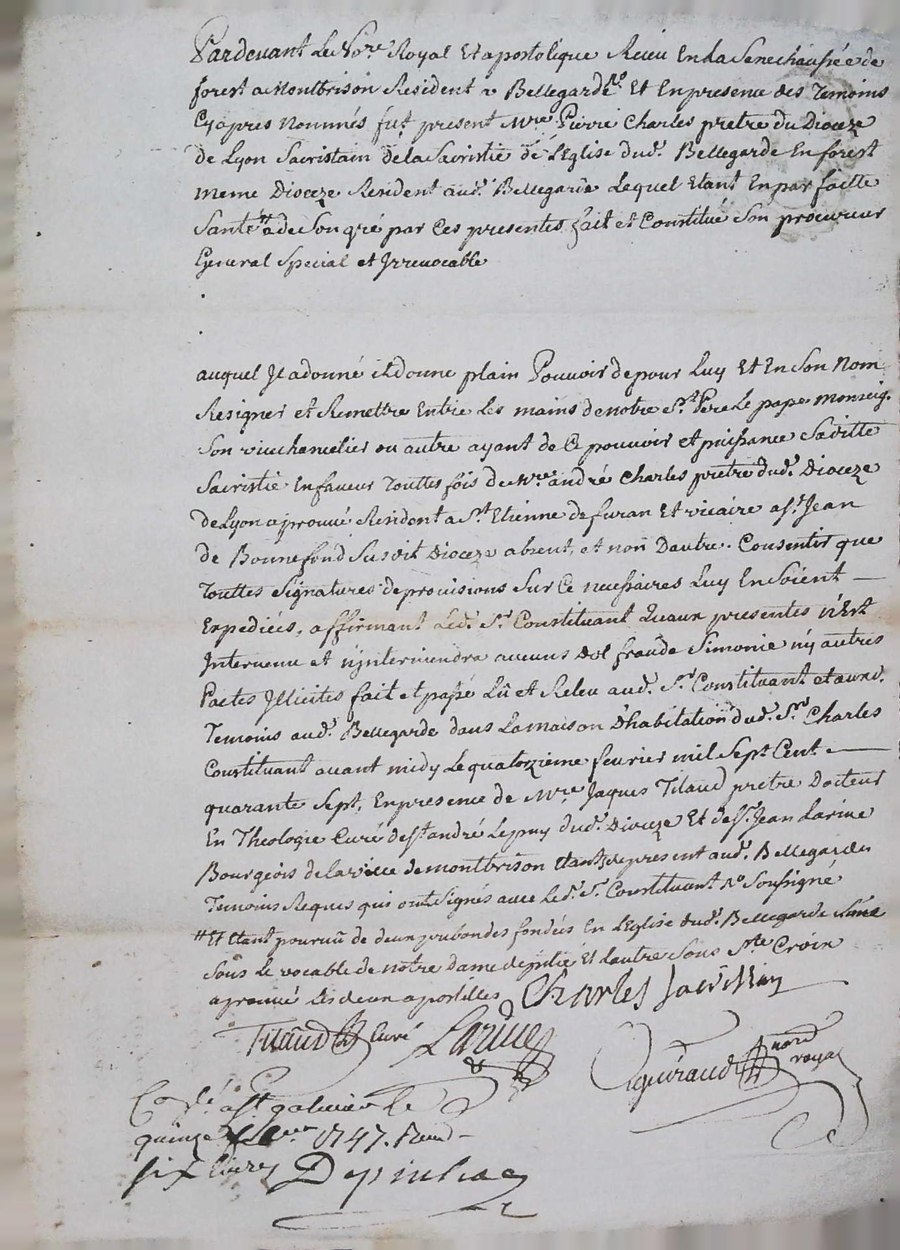 Pardevant Le No.re Royal Et apostolique Receu En La Senechaussée de
forest a Montbrison Resident a Bellegarde Et En presence des Temoins
Cy apres Nommés fut present M.re Pierre Charles pretre du Dioceze
de Lyon Sacristain de la Sacristie de L'Eglise dud. Bellegarde En forest
meme Dioceze Resident aud. Bellegarde Lequel Etant En parfaitte
Santé # a de Son gré par Ces presentes fait et Constitué Son procureur
General Special et Irrevocable
auquel Il a donné et donne plain Pouvoir de pour Luy Et En Son Nom
Resigner et Remettre Entre Les mains de notre S.t Pere Le pape Monseig.
Son vicechancelier ou autre ayant de Ce pouvoir et puissance Laditte
Sacristie En faveur Touttes fois de M.re andré Charles pretre dud. Dioceze
de Lyon aprouvé Resident a S.t Etienne de furan Et vicaire a S.t Jean
de Bonnefond Susdit Dioceze absent, et non D'autre. Consentir que
Touttes Signatures de provisions Sur Ce necessaires Luy En Soient
Expediées, affirmant Led. S.r Constituant Qu'aux presentes n'Est
Intervenu et n'y interviendra aucuns dol fraude Simonie ny autres
Pactes Illicites fait et passé Lû et Releu aud. S.r Constituant et auxd.
Temoins aud. Bellegarde dans La maison D'habitation dud. S.r Charles
Constituant avant midy Le quatorzieme fevrier mil Sept Cent
quarante Sept, En presence de M.re Jaques Titaud pretre Docteur
En Theologie Curé de S.t andré Le puy dud. Dioceze Et de S.r Jean Larine
Bourgeois de La ville de montbrison Etants de present aud. Bellegarde
Temoins Requis qui ont Signés avec Led. S.r Constituant Soussigné
# Et Etant pourvû de deux prebendes fondées En L'Eglise dud. Bellegarde L'une
Sous Le vocable de notre dame de pitié Et L'autre Sous S.te Croix
aprouvé Les deux apostilles Charles
Titaud Curé Larine
guiraud royal
a S.t galmier le
quinze 1747. Reçu
six livres